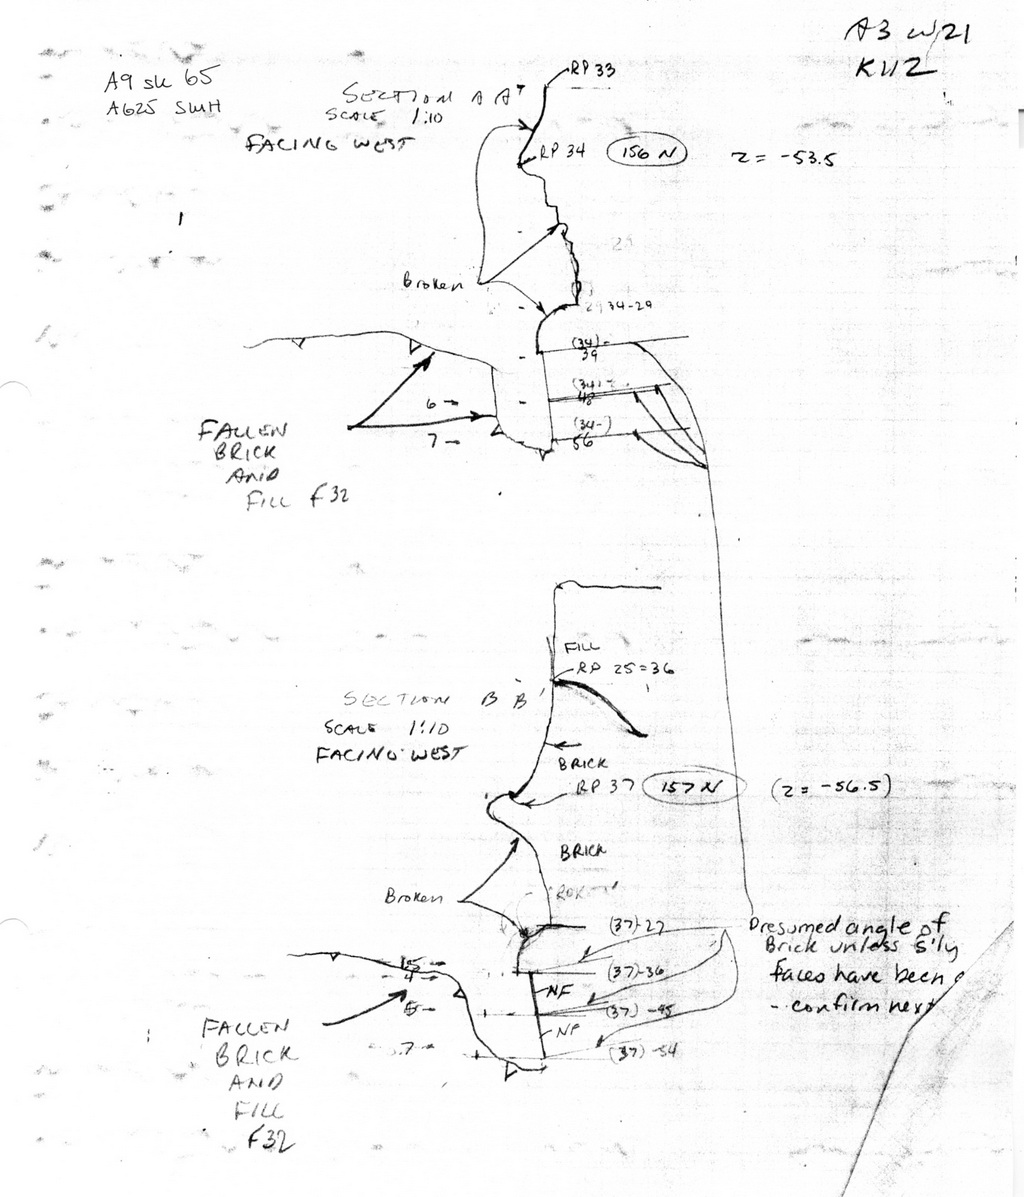 A3 W21
K112
A9 sk 65
A625 SWH
SECTION A A'
SCALE 1:10
FACING WEST
RP 33
RP 34 156 N z = -53.5
Broken
34-29
(34)-
39
(34)-
48
(34-)
56
6
7
FALLEN
BRICK
AND
FILL F32
FILL
RP 25=36
SECTION B B'
SCALE 1:10
FACING WEST
BRICK
RP 37 157 N (z = -56.5)
BRICK
Broken
(37)-27
(37)-36
(37)-45
(37)-54
NF
NF
4
7
Presumed angle of
Brick unless S'ly
faces have been
- confirm next
FALLEN
BRICK
AND
FILL
F32